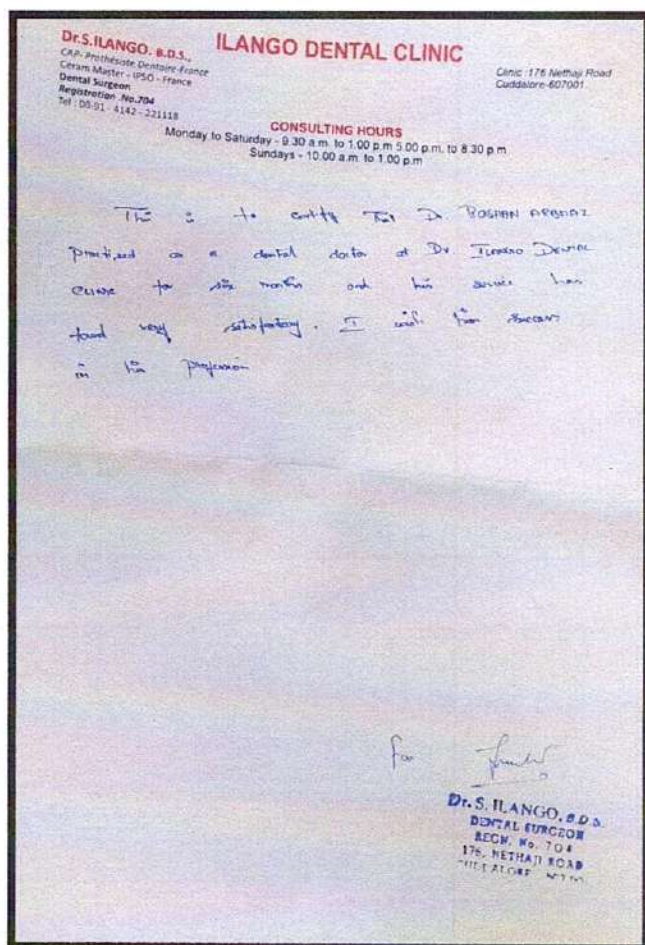 Dr.S.ILANGO. B.D.S.,
CAP- Prothésiste Dentaire-France
Céram Master - IPSO - France
Dental Surgeon
Registration .No.704
Tel : 00-91 - 4142 - 221118
ILANGO DENTAL CLINIC
Clinic :176 Nethaji Road
Cuddalore-607001.
CONSULTING HOURS
Monday to Saturday - 9.30 a.m. to 1.00 p.m 5.00 p.m. to 8.30 p.m
Sundays - 10.00 a.m. to 1.00 p.m
This is to certify that Dr
practised as a dental doctor at Dr ILANGO DENTAL
CLINIC for six months and his service has
found very satisfactory. I wish him success
in his profession
For
Dr. S. ILANGO, B.D.S.
DENTAL SURGEON
REGN. No. 704
176, NETHAJI ROAD